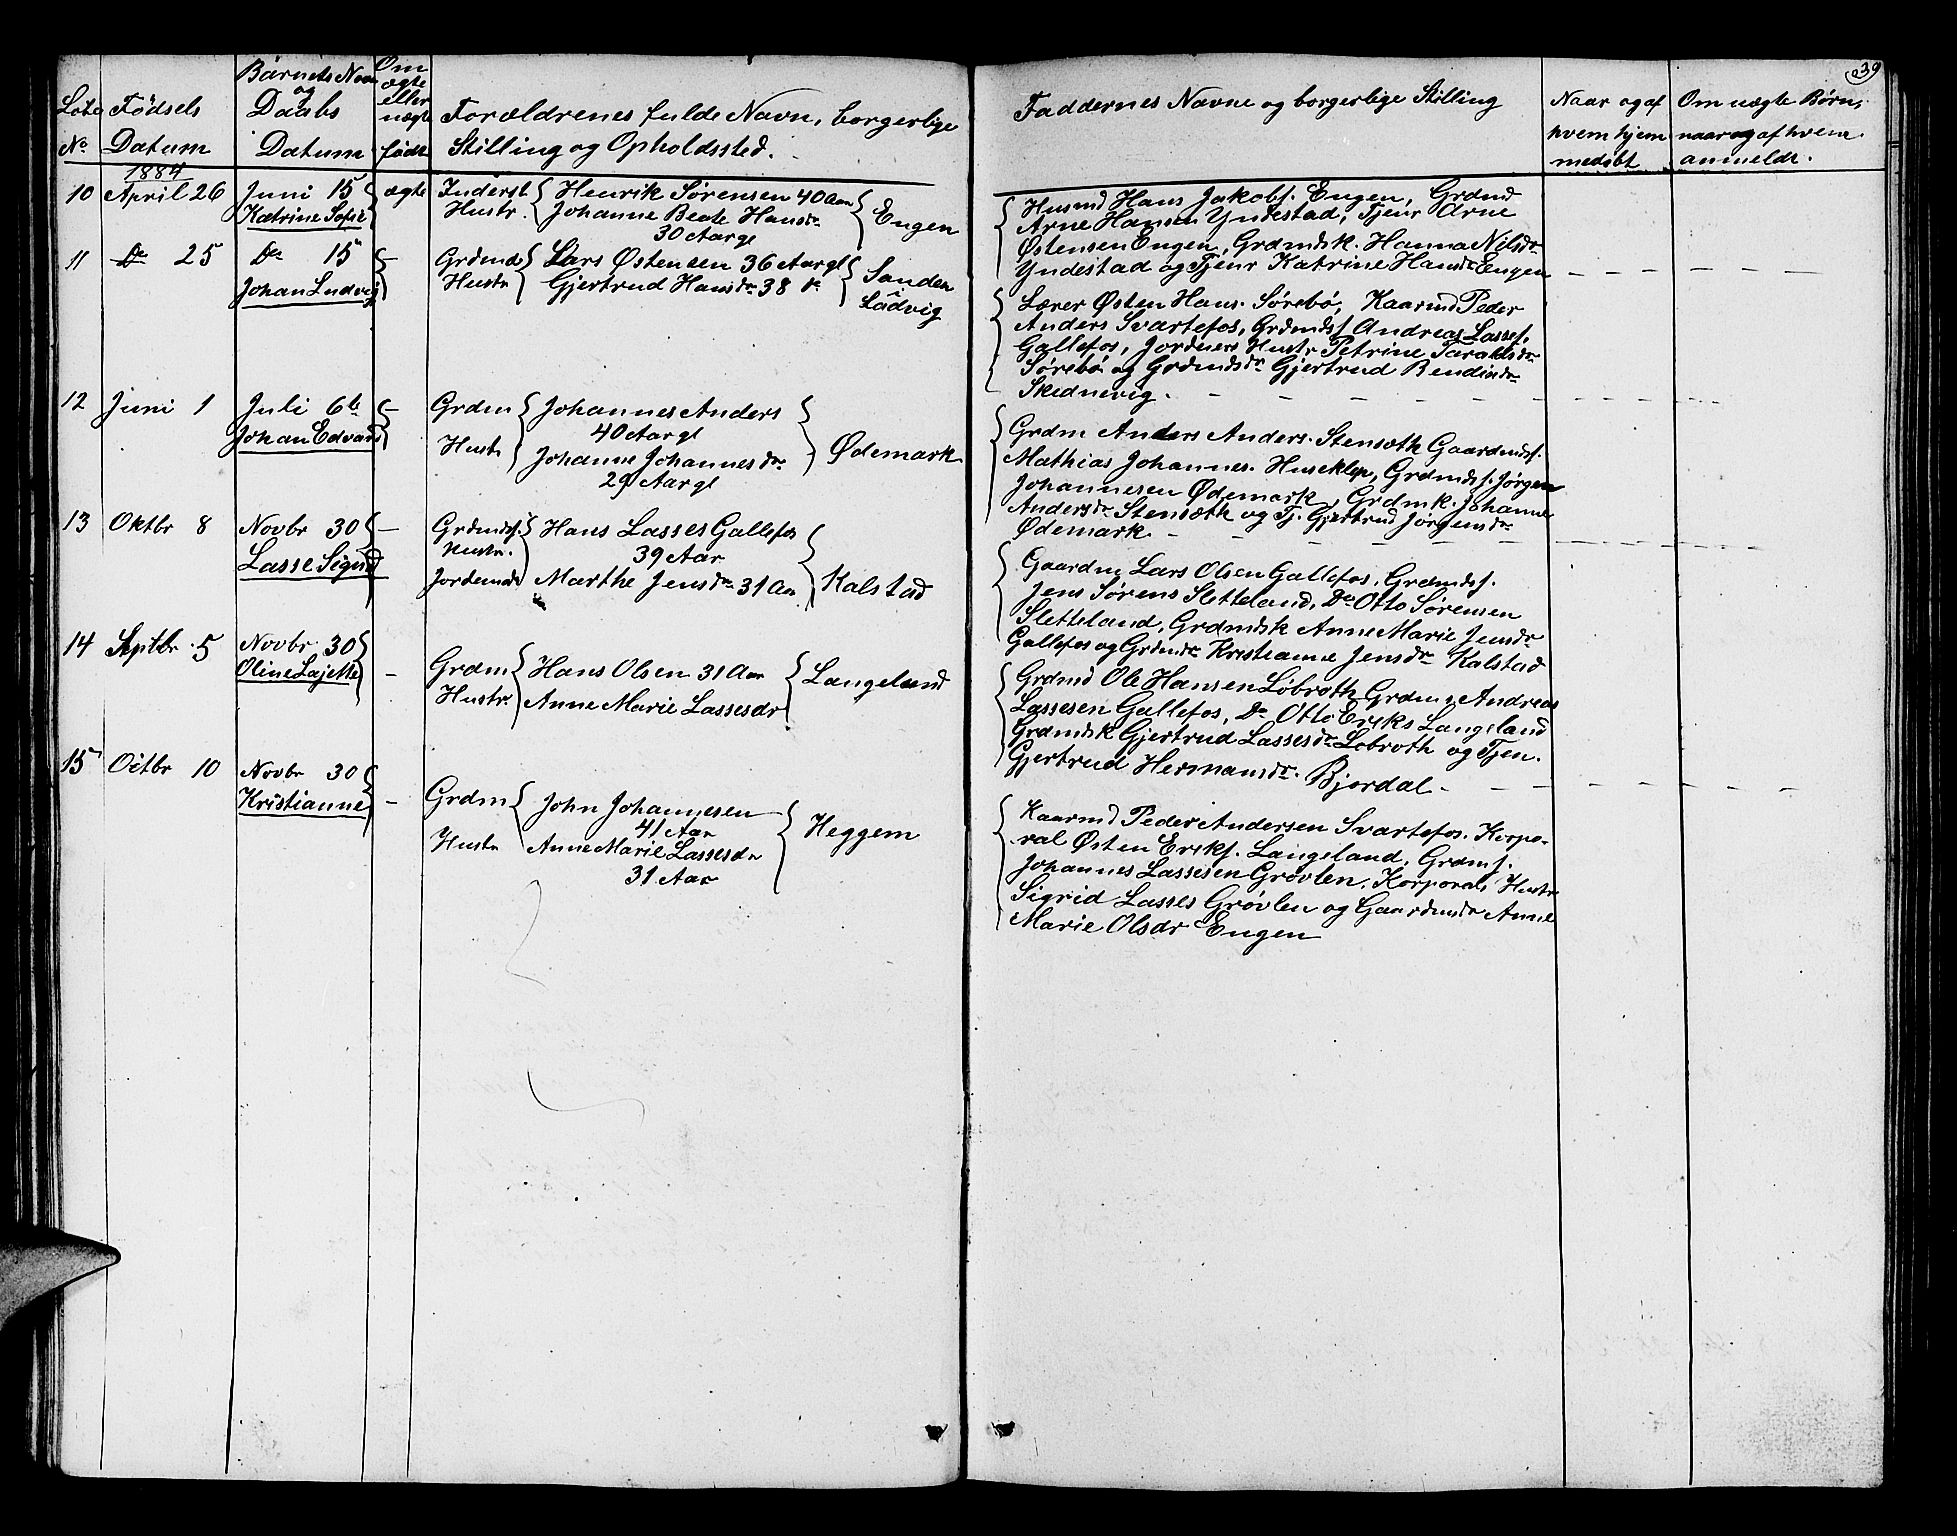 39
Løbe Fødsels Børnets Navn og Daabs Om ægte eller uægte Forældrenes fulde Navn, borgerlige
No Datum Datum født Stilling og Opholdssted.
1884
10 April 26 Juni 15 ægte Inderst Henrik Sørensen 40 Aar
Katrine Sofie Hustr. Johanne Beate Hansdr Engen
30 Aargl
11 Do 25 Do 15 — Grdmd Lars Østensen 36 Aargl Sanden
Johan Ludvig Hustr Gjertrud Hansdr 38 Do i
Ladvig
12 Juni 1 Juli 6te — Grdm Johannes Anders
Johan Edvard 40 Aargl
Hustr Johanne Johannesdr Ødemark
29 Aargl
13 Oktbr 8 Novbr 30 — Grdmdsf. Hans Lasses Gallefos
Lasse Sigurd Hustr. 39 Aar
Jordemdr Marthe Jensdr 31 Aar Kalstad
14 Septbr. 5 Novbr 30
Oline Lajette — Grdm Hans Olsen 31 Aar Langeland
Hustr. Anne Marie Lassesdr
15 Octbr 10 Novbr 30
Kristianne — Grdm John Johannesen
41 Aar Heggem
Hustr Anne Marie Lassesdr
31 Aar
Faddernes Navne og borgerlige Stilling Naar og af Om uægte Børn,
hvem hjem naar og af hvem
medøbt anmeldt.
Husmd Hans Jakobs. Engen, Grdmd
Arne Hansen Yndestad, Tjenr Arne
Østensen Engen, Grdmdsk. Hanna Nilsdr
Yndestad og Tjenr Katrine Hansdr Engen
Lærer Østen Hans. Sørebø, Kaarmd Peder
Anders Svartefos, Grdmdsf Andreas Lassef.
Gallefos, Jordeiers Hustr Petrine
Sørebø og Grdmdsdr Gjertrud
Skednevig.
Grdm Anders Anders. Stensæth Gaardmdsf.
Mathias Johannes. Huseklep, Grdmdsf. Jørgen
Johannesen Ødemark, Grdmk. Johanne
Andersdr Stensæth og Tj. Gjertrud Jørgensdr
Ødemark.
Gaardm Lars Olsen Gallefos, Grdmdsf.
Jens Sørens Sletteland, Do Otto Sørensen
Sletteland, Grdmdsk Anne Marie Jensdr
Gallefos og Grdmdr Kristianne Jensdr Kalstad
Grdmd Ole Hansen Løbroth Grdms Andreas
Lassesen Gallefos, Do Otto Eriks Langeland
Grdmdsk Gjertrud Lassesdr Løbroth og Tjen.
Gjertrud Hermansdr. Bjordal
Kaarmd Peder Andersen Svartefos. Korpo-
ral Østen Eriks. Langeland, Grdmsf.
Johannes Lassesen Grøvlen, Korporals Hustr
Sigrid Lasses Grøvlen og Gaardmdr Anne
Marie Olsdr Engen